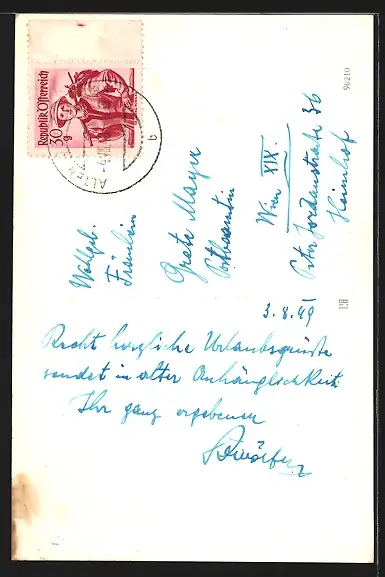 Republik Österreich
30 g
b
90210
Wohlgeb.
Fräulein
Grete Mayer
Wien XIX.
Peter Jordanstraße 36
Heimhof
3.8.49
Recht herzliche Urlaubsgrüße
sendet in alter Anhänglichkeit
Ihr ganz ergebener